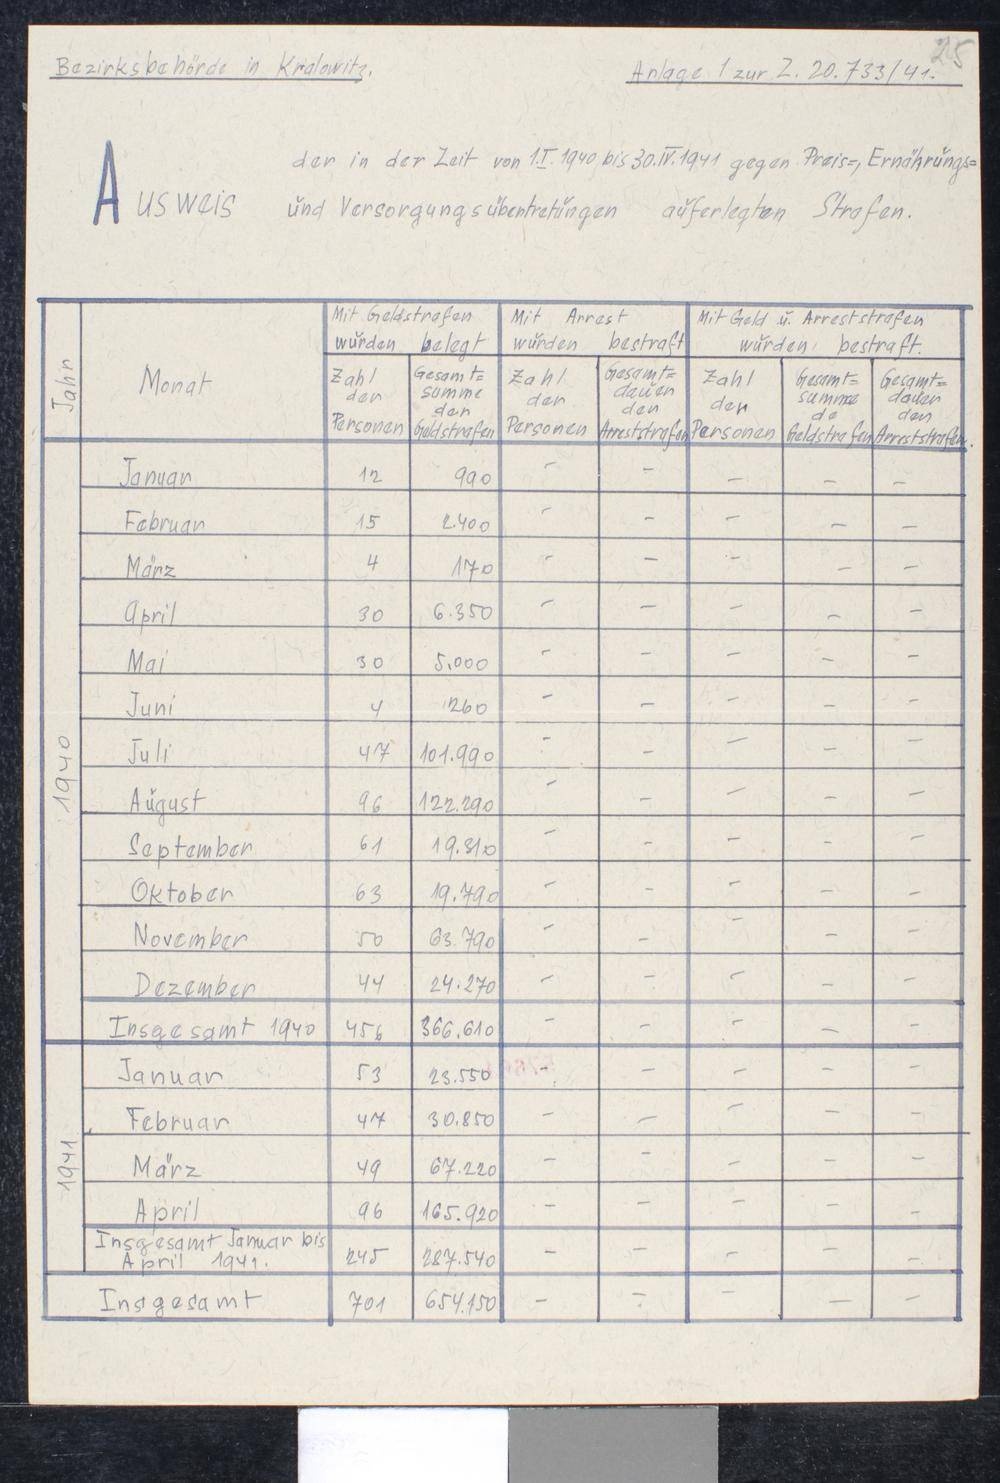 25
Bezirksbehörde in Kralowitz.
Anlage 1 zur Z. 20.733/41.
Ausweis der in der Zeit von 1.I.1940 bis 30.IV.1941 gegen Preis=, Ernährungs=
und Versorgungsübertretungen auferlegten Strafen.
Jahr Monat Mit Geldstrafen wurden belegt Mit Arrest wurden bestraft Mit Geld u. Arreststrafen wurden bestraft.
Zahl der Personen Gesamt=summe der Geldstrafen Zahl der Personen Gesamt=dauer der Arreststrafen Zahl der Personen Gesamt=summe de Geldstrafen Gesamt=dauer der Arreststrafen.
1940
Januar 12 990 - - - - -
Februar 15 2.400 - - - - -
März 4 170 - - - - -
April 30 6.350 - - - - -
Mai 30 5.000 - - - - -
Juni 4 260 - - - - -
Juli 47 101.990 - - - - -
August 96 122.290 - - - - -
September 61 19.310 - - - - -
Oktober 63 19.790 - - - - -
November 50 63.790 - - - - -
Dezember 44 24.270 - - - - -
Insgesamt 1940 456 366.610 - - - - -
1941
Januar 53 23.550 - - - - -
Februar 47 30.850 - - - - -
März 49 67.220 - - - - -
April 96 165.920 - - - - -
Insgesamt Januar bis
April 1941. 245 287.540 - - - - -
Insgesamt 701 654.150 - - - - -